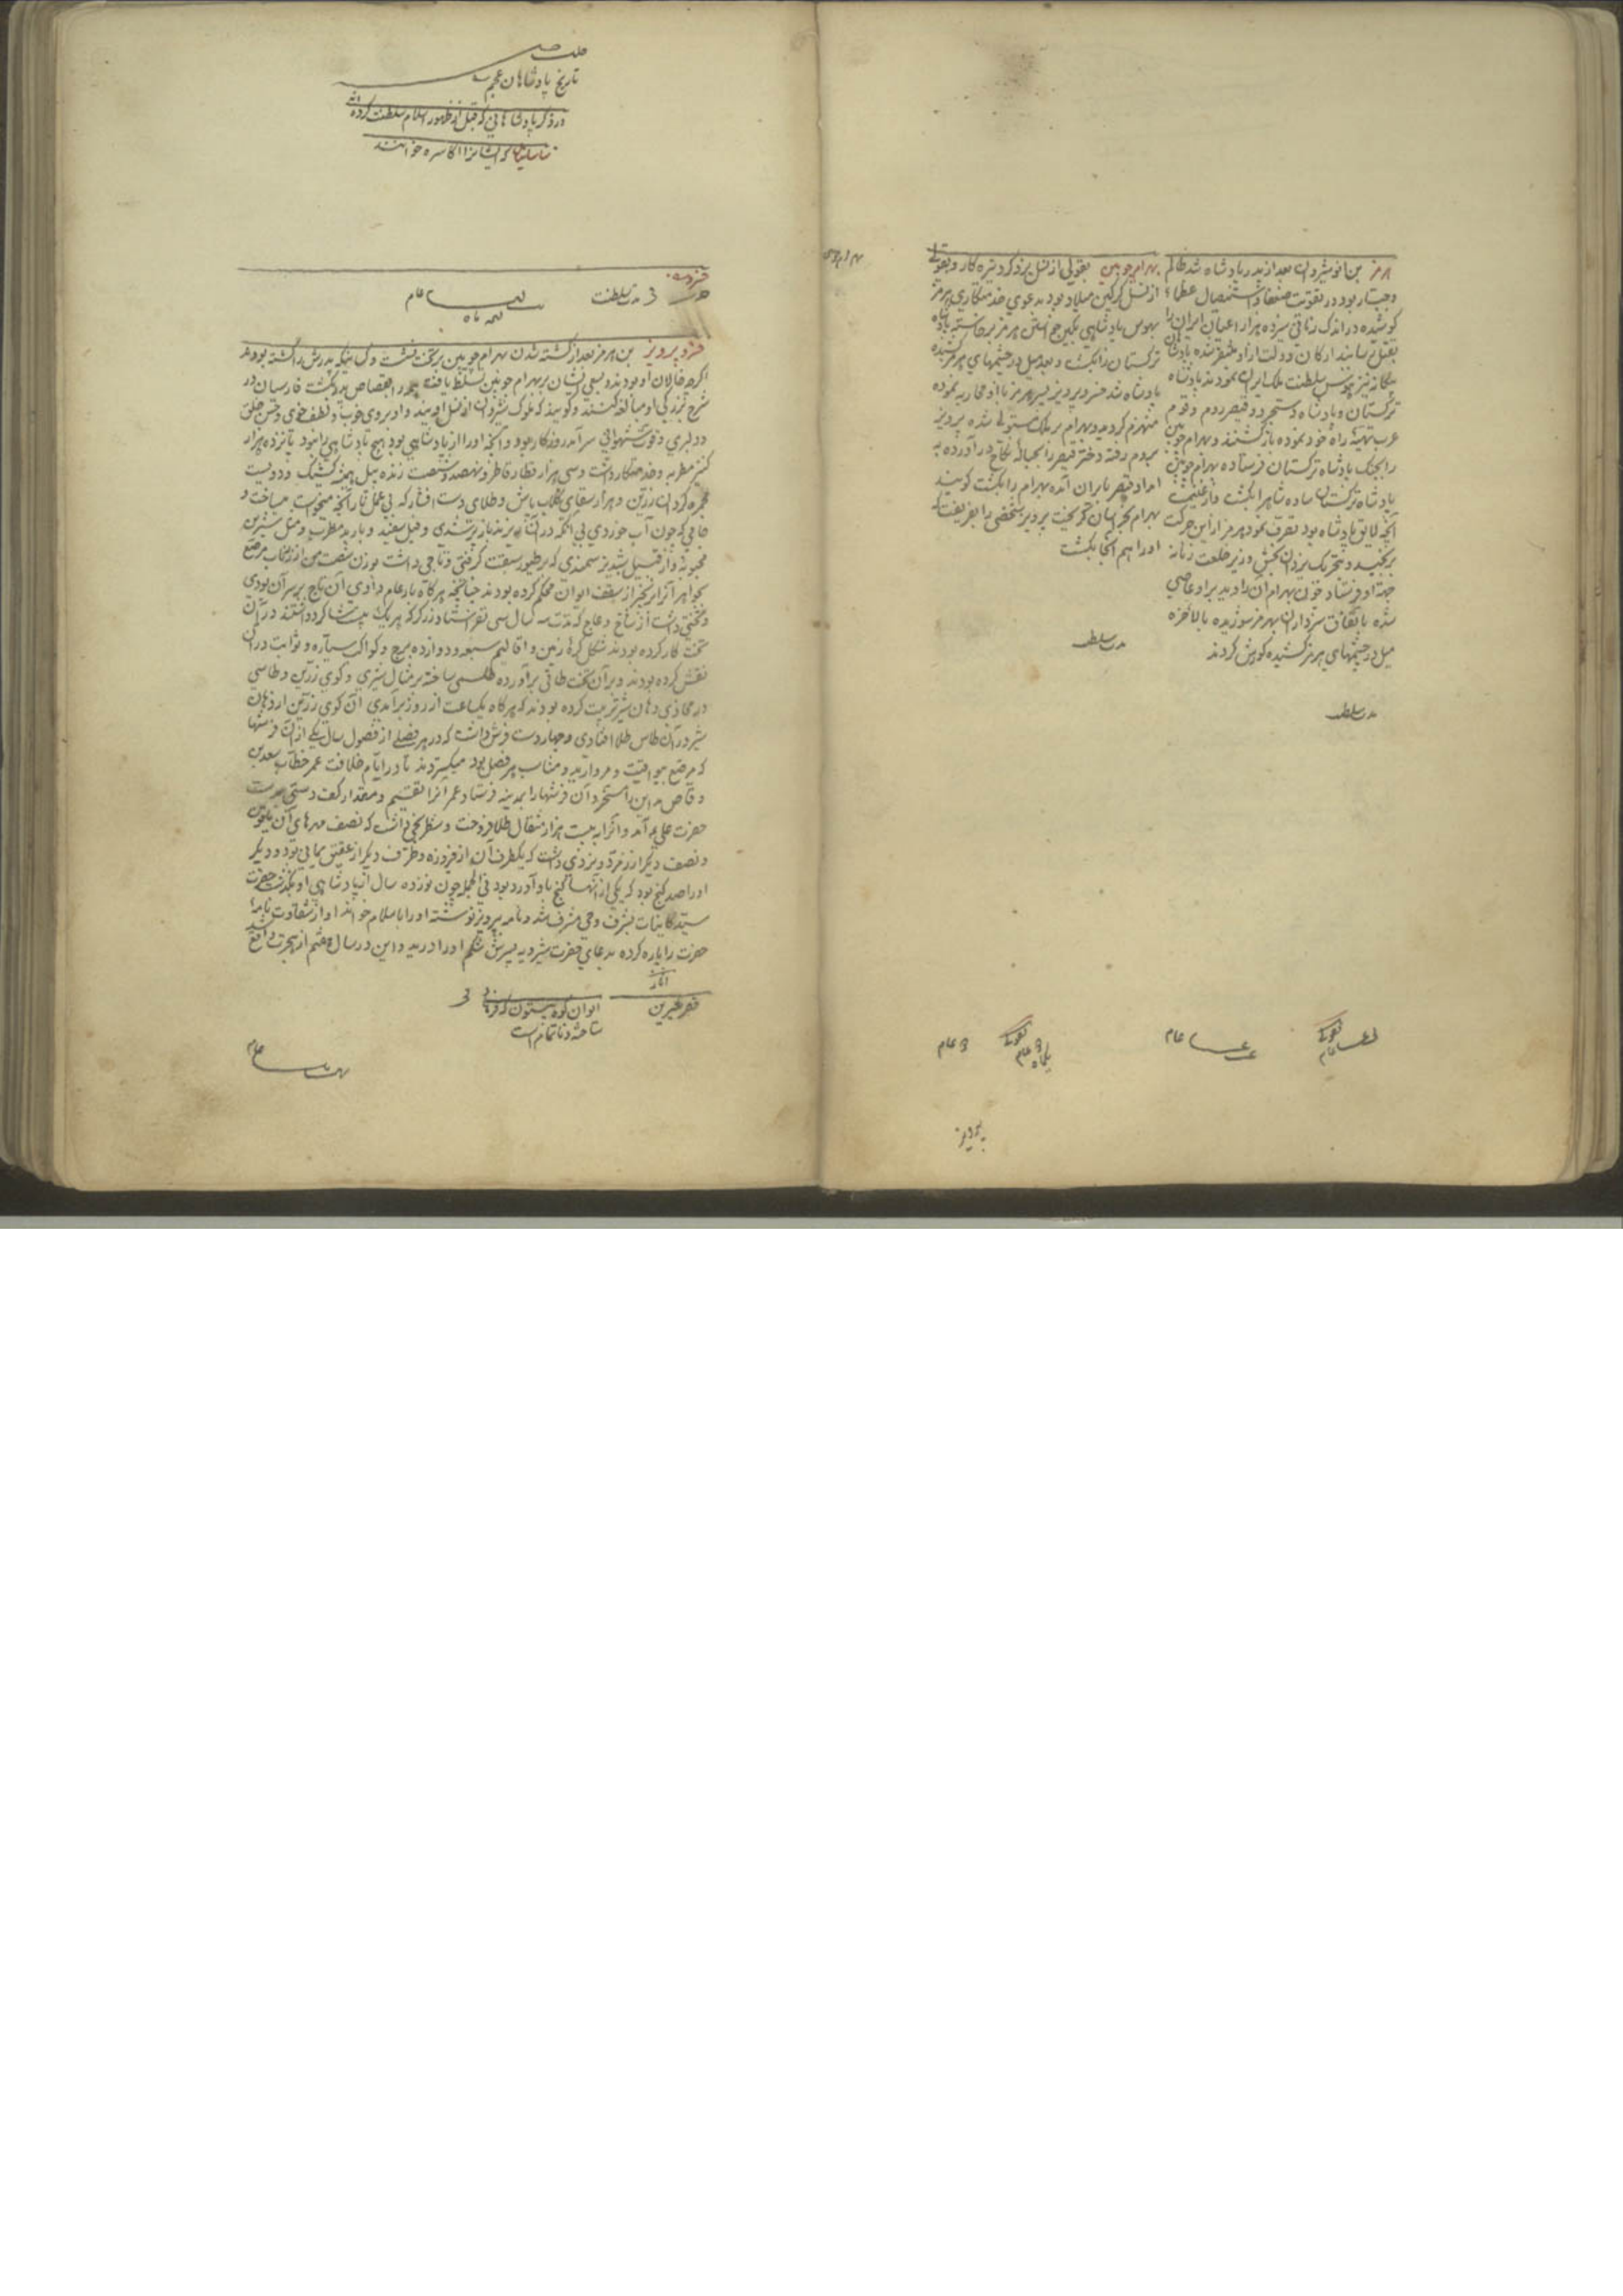 هرمز بن انوشیروان بعد از پدر پادشاه شد ظالم
و جبار بود در تقویت ضعفا و استیصال عظما
کوشیده در اندک زمانی سیزده هزار اعیان ایران را
بقتل رسانید ارکان دولت ازاو متنفر شده پادشاهان
بیگانه نیز بهوس سلطنت ملک ایران نمودند پادشاه
ترکستان و پادشاه دشت خزر و قیصر روم و قوم
عرب تهیهٔ راه خود نموده بازگشتند و بهرام چوبین
را بجنک پادشاه ترکستان فرستاده بهرام چوبین
پادشاه ترکستان ساده شاه را بکشت و از غنیمت
آنچه لایق پادشاه بود تصرف نمود هرمز از این حرکت
برنجید و بتحریک یزدان بخش وزیر خلعت زنانه
جهة او فرستاد چون بهرام آن را دید بر او عاصی
شده باتفاق سرداران بهرمز شوریده بالاخره
میل در چشمهای هرمز کشیده کورش کردند
مدت سلطنت
بهرام چوبین بقولی از نسل یزدگرد بزه کار و بقولی
از نسل گرگین میلاد بود بدعوی خدمتکاری هرمز
بهوس پادشاهی بکین جستن هرمز برخاسته پادشاه
ترکستان را بکشت و بعد میل در چشمهای هرمز کشیده
پادشاه شد خسرو پرویز پسر هرمز با او محاربه نموده
منهزم گردید و بهرام بر ملک مستولی شده پرویز
بروم رفته دختر قیصر را بحبالهٔ نکاح درآورده به
امداد قیصر بایران آمده بهرام را بکشت گویند
بهرام بخراسان گریخت پرویز شخصی را بفریفت که
او را هم آنجا بکشت
مدت سلطنت
عام
عام
عام
عام
پرویز
تاریخ پادشاهان عجم
در ذکر پادشاهانی که قبل از ظهور اسلام سلطنت کرده اند
ساسانیان که ایشانرا اکاسره خوانند
مدت سلطنت
عام
خسرو پرویز بن هرمز بعد از کشته شدن بهرام چوبین بر تخت نشست و کسانیکه پدرش را کشته بودند
اگرچه خالان او بودند و بسعی ایشان بر بهرام چوبین تسلط یافت همه را بقصاص پدر بکشت فارسیان در
شرح بزرگی او مبالغه کنند و گویند که ملوک شیروان از نسل اویند و او بروی خوب و لطف خوی و حسن خلق
و دلبری و قوت شهوانی سرآمد روزگار بود و آنچه او را از پادشاهی بود هیچ پادشاهی را نبود پانزده هزار
کنیز مطربه و خدمتکار داشت و سی هزار قطار قاطر و نهصد و شصت زنده پیل همیشه کشیک و دویست
مجمره گردان زرین و هزار سقای گلاب پاش و طلای دست افشار که بی عمل نار آنچه میخواست میساخت و
جامی که چون آب خوردی بی آنکه در آن آب ریزند باز پر شدی و فیل سفید و باربد مطرب و مثل شیرین
محبوبه و از قبیل شبدیز سمندی که بر طیور سبقت گرفتی و تاجی داشت بوزن شصت من از زر ناب مرصع
بجواهر آنرا بزنجیر از سقف ایوان محکم کرده بودند چنانچه هرگاه بار عام دادی آن تاج بر سر آن بودی
و تختی داشت از ساج و عاج که مدت سه سال سی نفر استاد زرگر که هر یک بیست شاگرد داشتند در آن
تخت کار کرده بودند شکل کرهٔ زمین و اقالیم سبعه و دوازده برج و کواکب سیاره و ثوابت در آن
نقش کرده بودند و بر آن تخت طاقی برآورده طلسمی ساخته بر مثال شیری و گوی زرین و طاسی
در محاذی دهان شیر ترتیب کرده بودند که هرگاه یکساعت از روز برآمدی آن گوی زرین از دهان
شیر در آن طاس طلا افتادی و چهار دست فرش داشت که در هر فصلی از فصول سال یکی از آن فرشها
که مرصع بیواقیت و مروارید و مناسب هر فصل بود میگستردند تا در ایام خلافت عمر خطاب سعد بن
وقاص مداین را مسخر و آن فرشها را بمدینه فرستاد عمر آنرا تقسیم و مقدار کف دستی بدست
حضرت علی ع آمد و آنرا به بیست هزار مثقال طلا فروخت و شطرنجی داشت که نصف مهرهای آن یاقوت
و نصف دیگر از زمرد و نردی داشت که یکطرف آن از فیروزه و طرف دیگر از عقیق یمانی بود و دیگر
او را صد گنج بود که یکی از آنها گنج بادآورد بود فی الجمله چون نوزده سال از پادشاهی او بگذشت حضرت
سید کاینات بشرف وحی مشرف شد و نامه بپرویز نوشته او را باسلام خواند او از شقاوت نامهٔ
حضرت را پاره کرده بدعای حضرت شیرویه پسرش شکم او را درید و این در سال هفتم از هجرت واقع شد
آثار
قصر شیرین
ایوان کوه بیستون که فرهاد
ساخته و ناتمام است
عام